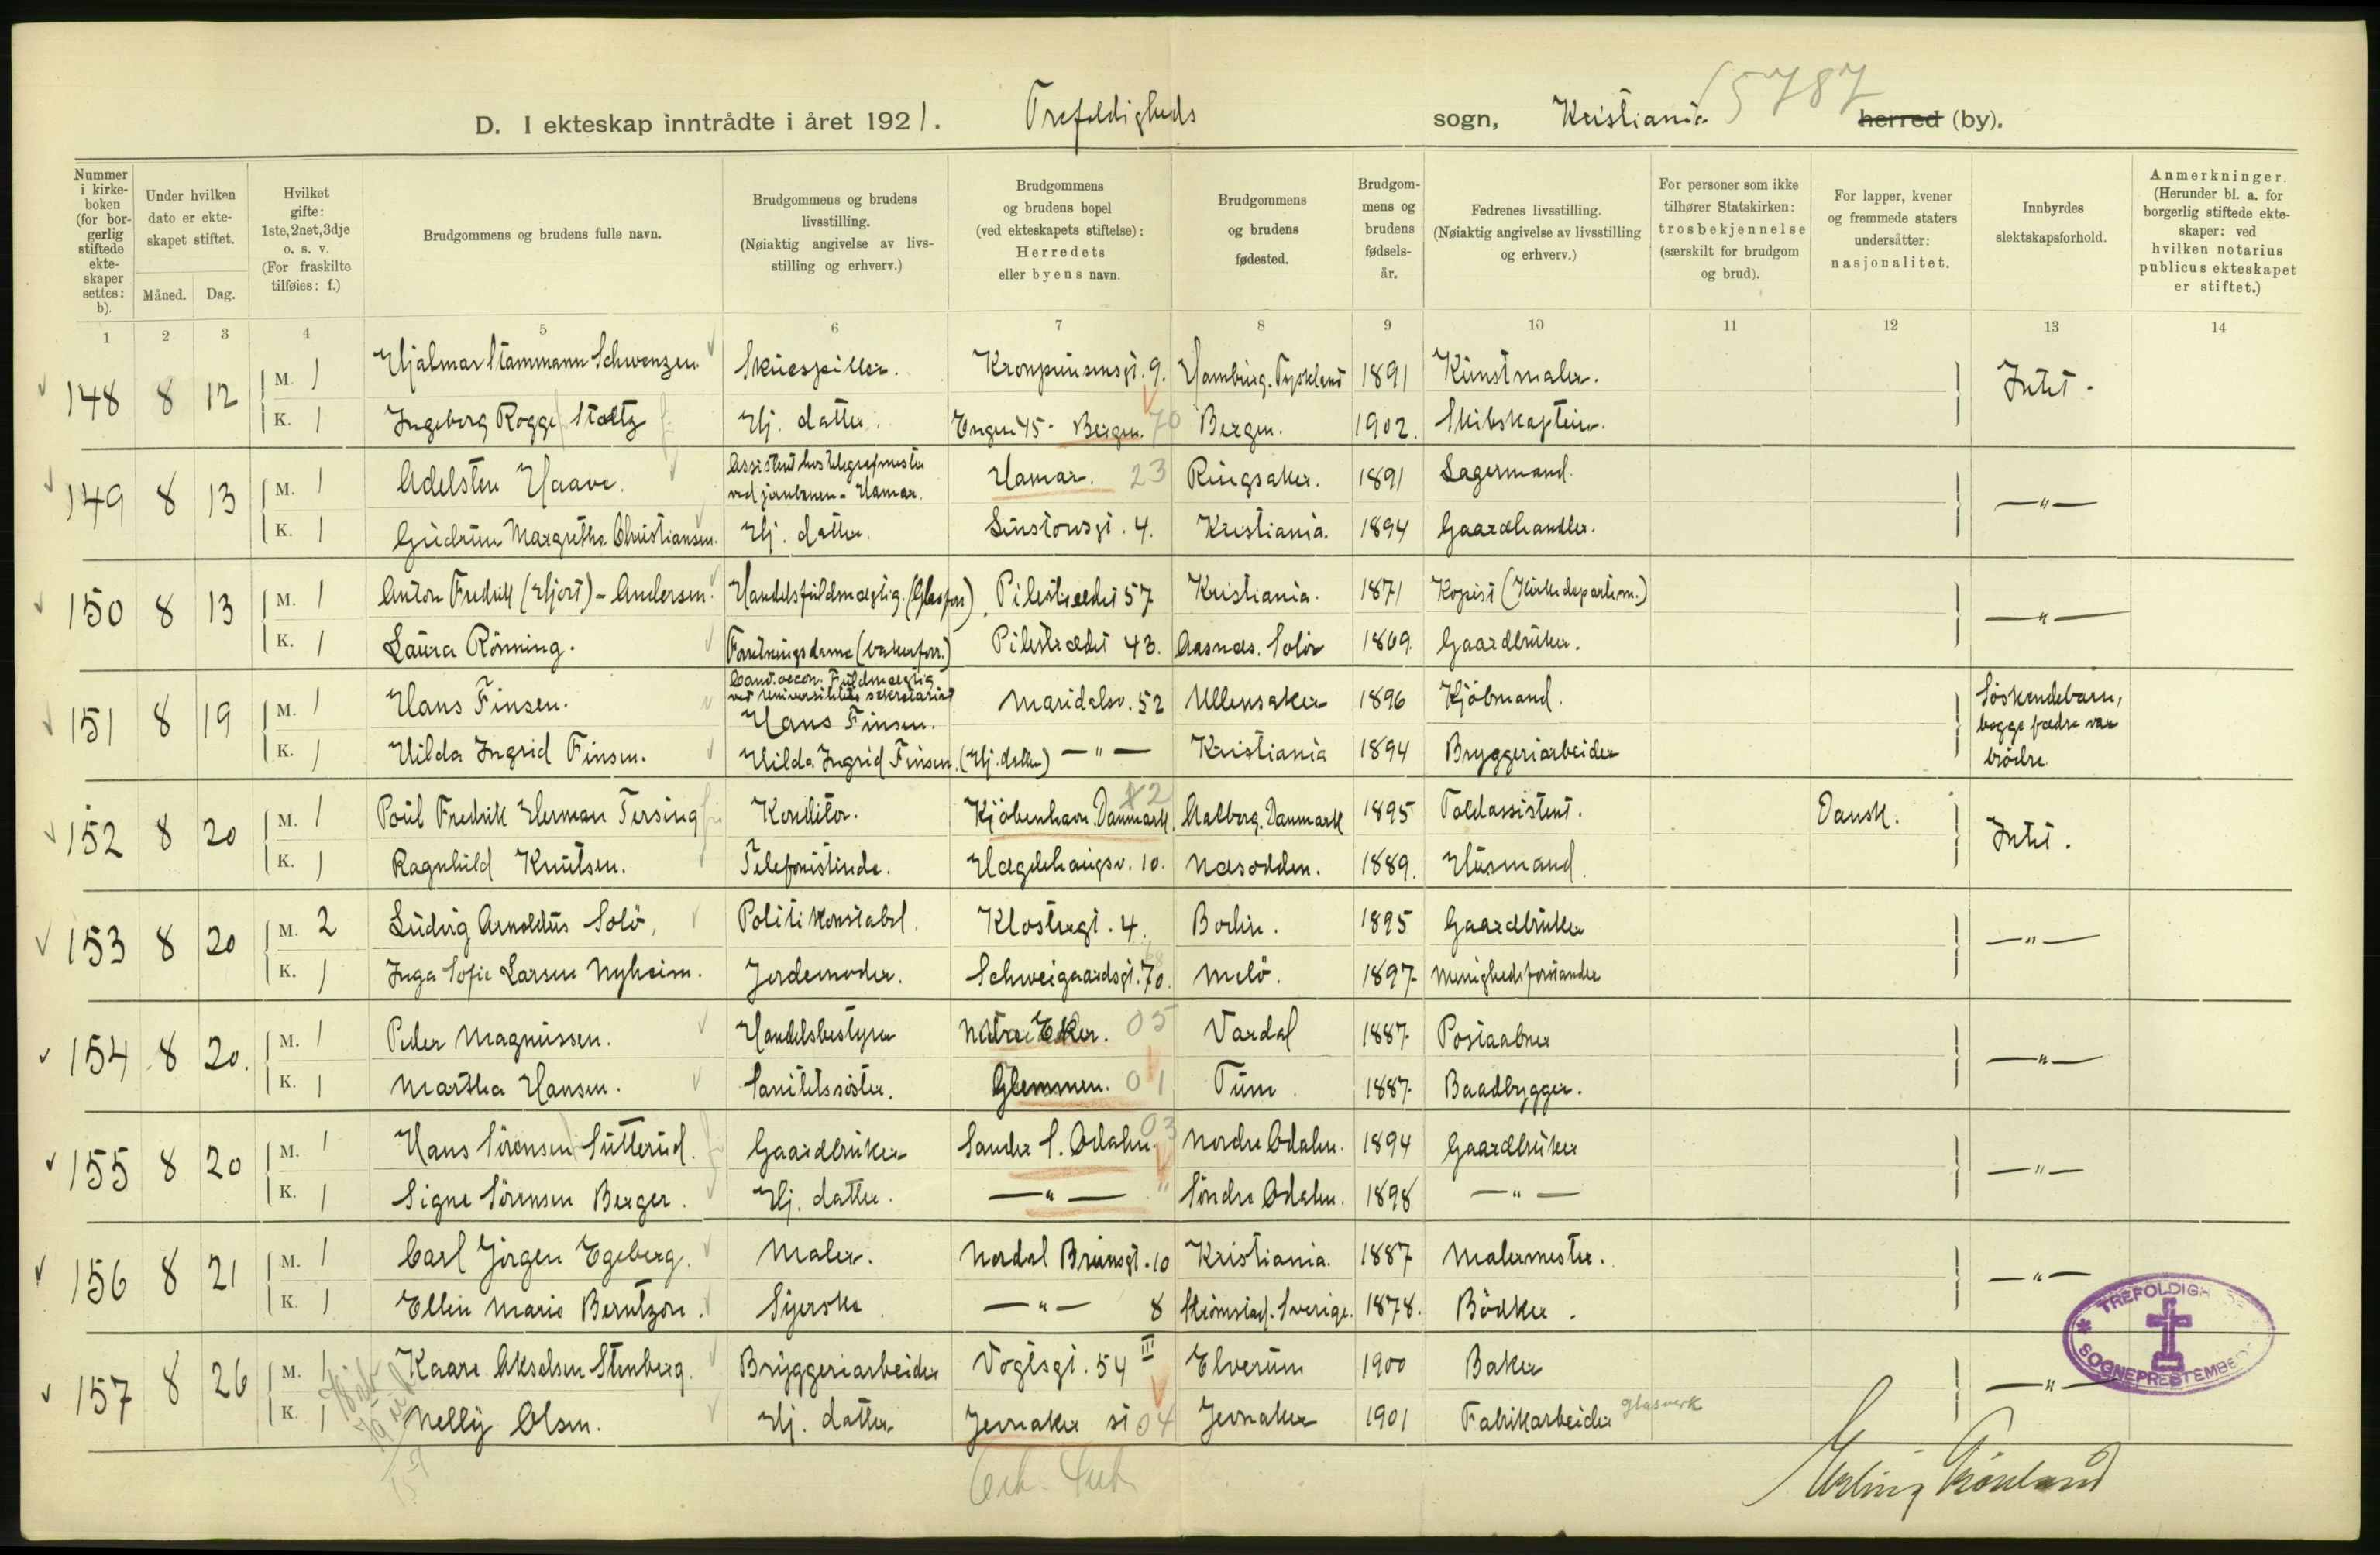 15787
D. I ekteskap inntrådte i året 1921. Trefoldigheds sogn, Kristiania herred (by).
Nummer i kirke-boken (for bor-gerlig stiftede ekte-skaper settes: b).
Under hvilken dato er ekte-skapet stiftet.
Måned. Dag.
Hvilket gifte: 1ste, 2net, 3dje o. s. v. (For fraskilte tilføies: f.)
Brudgommens og brudens fulle navn.
Brudgommens og brudens livsstilling. (Nøiaktig angivelse av livs-stilling og erhverv.)
Brudgommens og brudens bopel (ved ekteskapets stiftelse): Herredets eller byens navn.
Brudgommens og brudens fødested.
Brudgom-mens og brudens fødsels-år.
Fedrenes livsstilling. (Nøiaktig angivelse av livsstilling og erhverv.)
For personer som ikke tilhører Statskirken: trosbekjennelse (særskilt for brudgom og brud).
For lapper, kvener og fremmede staters undersåtter: nasjonalitet.
Innbyrdes slektskapsforhold.
Anmerkninger. (Herunder bl. a. for borgerlig stiftede ekte-skaper: ved hvilken notarius publicus ekteskapet er stiftet.)
1 2 3 4 5 6 7 8 9 10 11 12 13 14
148 8 12 M. 1 Hjalmar Stammann Schwenzen. Skuespiller. Kronprinsensgt. 9. Hamburg. Tyskland 1891 Kunstmaler. Intet.
K. 1 Ingeborg Rogge Stoltz Hj. datter. Engen 45 - Bergen. 70 Bergen. 1902. Skibskaptein.
149 8 13 M. 1 Adelsten Haave. Assistent hos telegrafmester ved jernbanen - Hamar. Hamar. 23 Ringsaker. 1891 Lagermand. — " —
K. 1 Gudrun Margrethe Christiansen. Hj. datter. Linstowsgt. 4. Kristiania. 1894 Gaardhandler.
150 8 13 M. 1 Anton Fredrik (Hjort) - Andersen. Handelsfuldmægtig. (Glasforr) Pilestrædet 57 Kristiania. 1871 Kopist (Kirkedepartem.) — " —
K. 1 Laura Rönning. Forretningsdame (bakerforr.) Pilestrædet 43. Aasnæs. Solör 1869. Gaardbruker.
151 8 19 M. 1 Hans Finsen. Cand. oecon. Fuldmægtig ved Universitetets sekretariat Hans Finsen. Maridalsv. 52 Ullensaker 1896 Kjöbmand. Söskendebarn, begge fædre var brödre.
K. 1 Hilda Ingrid Finsen. Hilda Ingrid Finsen. (Hj. datter) — " — Kristiania 1894 Bryggeriarbeider
152 8 20 M. 1 Poul Fredrik Herman Tersing Konditor. Kjöbenhavn. Danmark. Aalborg. Danmark 1895 Toldassistent. Dansk. Intet.
K. 1 Ragnhild Knutsen. Telefonistinde. Hægdehaugsv. 10. Næsodden. 1889. Husmand.
153 8 20 M. 2 Ludvig Arnoldus Solö, Politikonstabel. Klostergt. 4. Bodin. 1895 Gaardbruker — " —
K. 1 Inga Sofie Larsen Nyheim. Jordemoder. Schweigaardsgt. 70. Melö. 1897. Menighedsforstander
154 8 20. M. 1 Peder Magnussen. Handelsbestyrer Nedre Eker. 05 Vardal 1887. Postaabner — " —
K. 1 Martha Hansen. Sanitetssöster. Glemmen. 01 Tune. 1887. Baadbygger.
155 8 20 M. 1 Hans Sörensen Sutterud. Gaardbruker Sander S. Odalen. 03 Nordre Odalen. 1894 Gaardbruker — " —
K. 1 Signe Sörensen Berger. Hj. datter. — " — " Söndre Odalen. 1898 — " —
156 8 21 M. 1 Carl Jörgen Egeberg. Maler. Nordal Brunsgt. 10 Kristiania. 1887 Malermester. — " —
K. 1 Ellen Marie Berntzon. Syerske. — " — 8 Strömstad. Sverige. 1878. Bödker.
157 8 26 M. 1 Kaare Akselsen Stenberg. Bryggeriarbeider Vogtsgt. 54 III Elverum 1900 Baker — " —
K. 1 Nelly Olsen. Hj. datter Jevnaker st 04 Jevnaker 1901 Fabrikarbeider glasverk
TREFOLDIGH
SOGNEPRESTEMBE
Erling Grönland